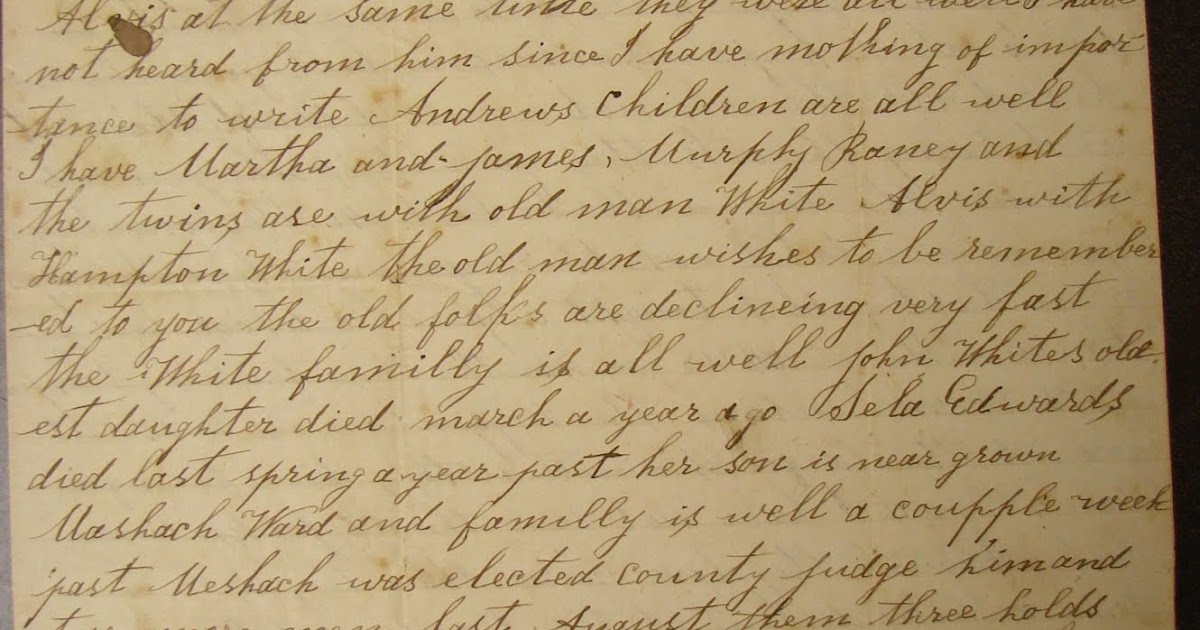 Alvis at the same time they were all well I have
not heard from him since I have mothing of impor
tance to write Andrews Children are all well
I have Martha and James, Murphy Raney and
the twins are with old man White Alvis with
Hampton White the old man wishes to be remember
-ed to you the old folks are declineing very fast
the White familly is all well John Whites old-
est daughter died march a year ago Sela Edwards
died last spring a year past her son is near grown
Mashach Ward and familly is well a coupple week
past Meshach was elected county judge him and
last August them three holds